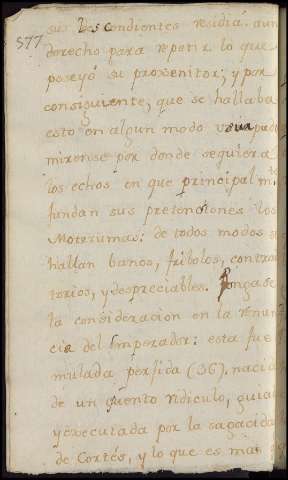 577
sus Descendientes residia aun
derecho para repetir lo que
poseyó su proxenitor; y por
consiguiente, que se hallaba
esto en algun modo
mirense por donde se quiera
los echos en que principal mte
fundan sus pretenciones los
Motezumas: de todos modos se
hallan banos, fribolos, contra
torios, y despreciables. Pongase
la consideracion en la renun
cia del Emperador: esta fue
mulada perfida (36). nacida
de un quento ridiculo, guiad
y executada por la sagacida
de Cortés, y lo que es mas